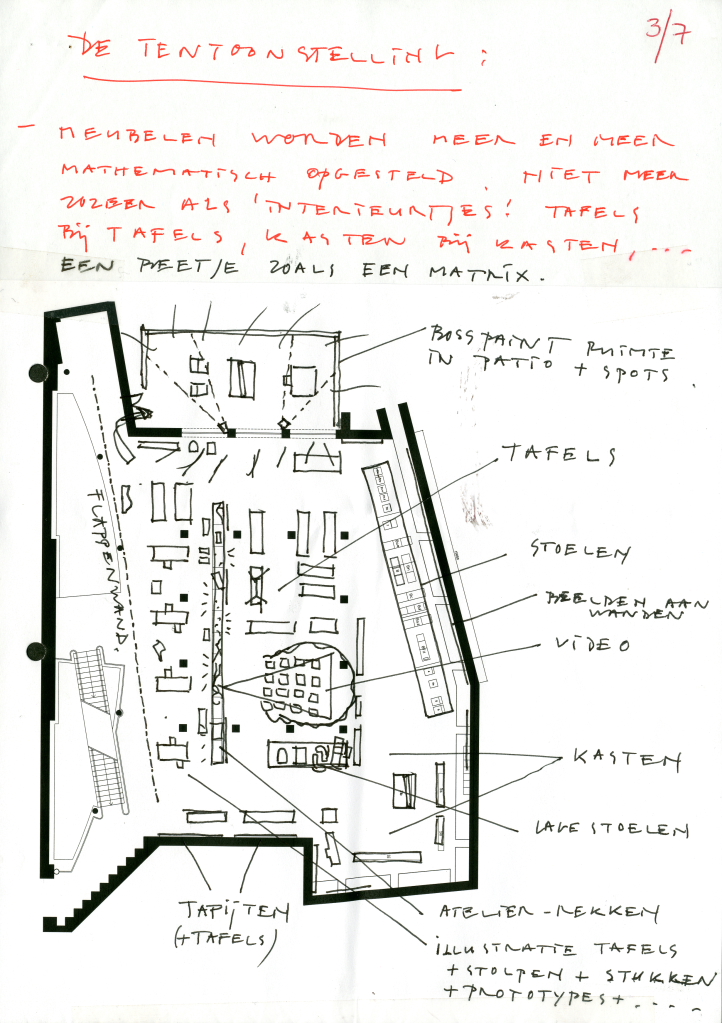 3/7
DE TENTOONSTELLING :
- MEUBELEN WORDEN MEER EN MEER
MATHEMATISCH OPGESTELD. NIET MEER
ZOZEER ALS 'INTERIEURTJES'. TAFELS
BIJ TAFELS, KASTEN BIJ KASTEN, ...
EEN BEETJE ZOALS EEN MATRIX.
BOSSPAINT RUIMTE
IN PATIO + SPOTS.
TAFELS
FLAPPENWAND.
STOELEN
BEELDEN AAN
WANDEN
VIDEO
KASTEN
LAGE STOELEN
TAPIJTEN
(+TAFELS)
ATELIER-REKKEN
ILLUSTRATIE TAFELS
+ STOLPEN + STUKKEN
+ PROTOTYPES + ....